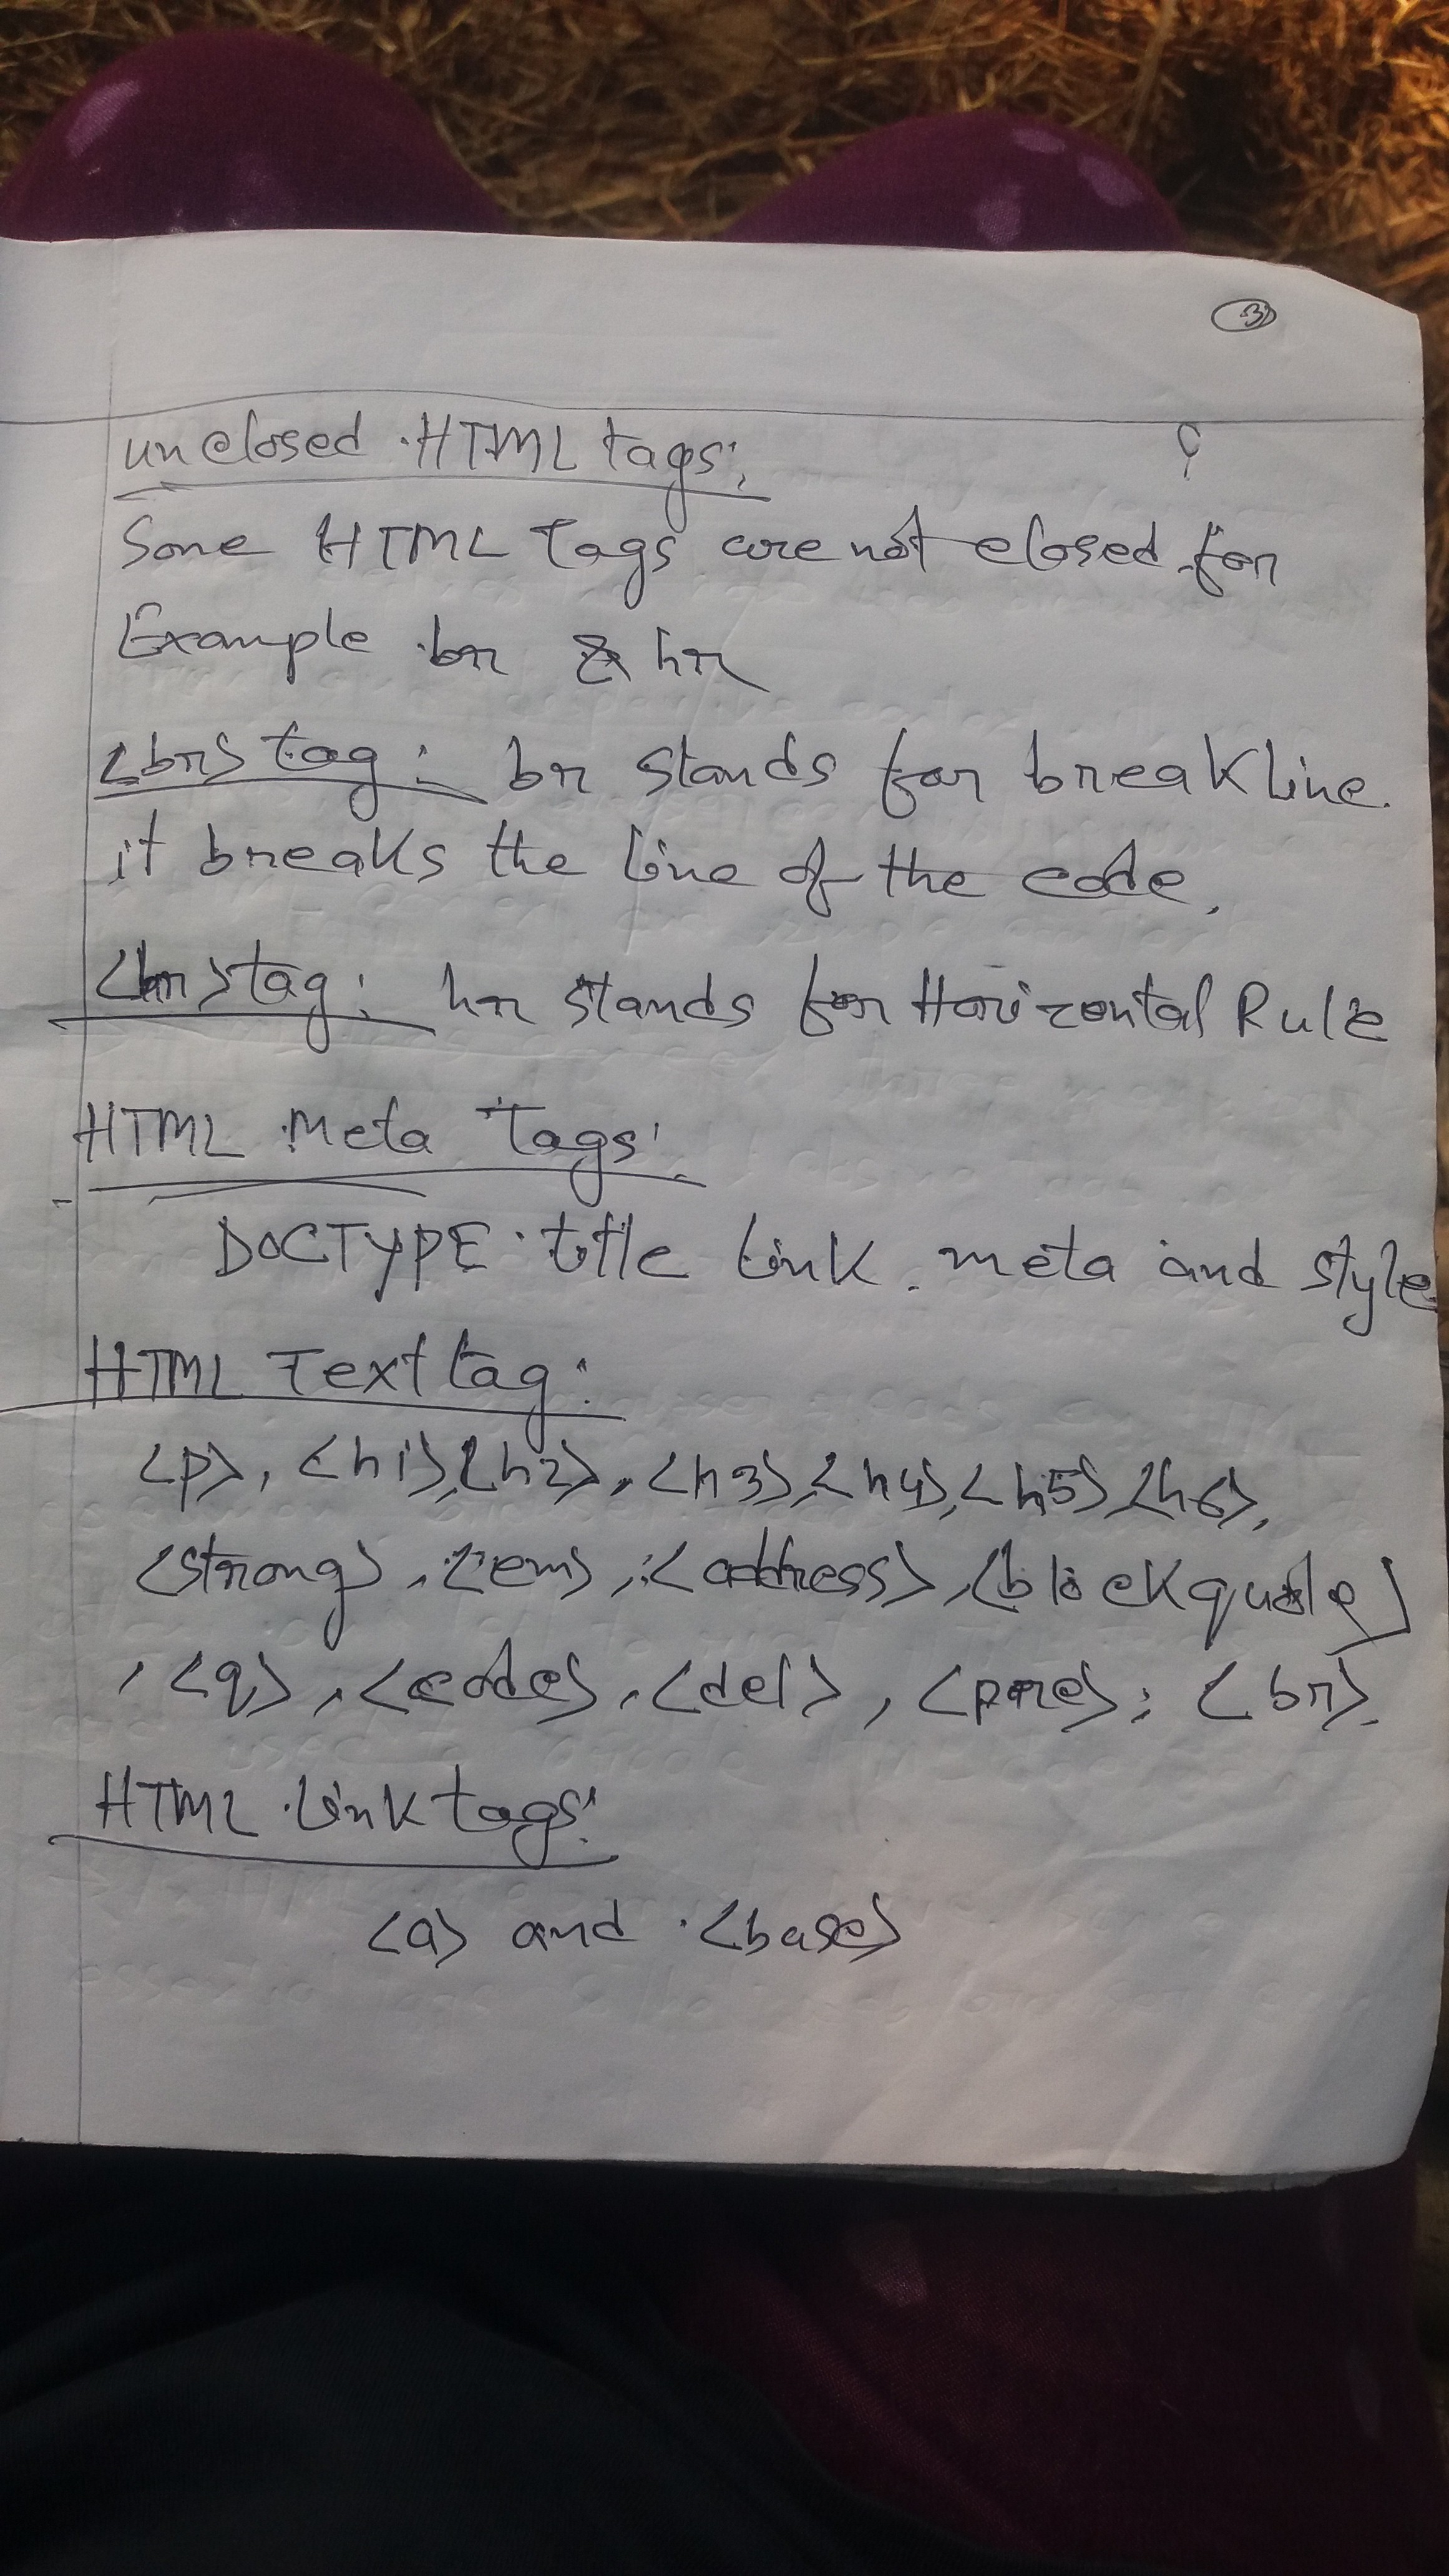 3
unclosed HTML tags:
Some HTML Tags are not closed for
Example br & hr
<br> tag: br stands for break line.
it breaks the line of the code.
<hr> tag: hr stands for Horizontal Rule
HTML Meta Tags:
DOCTYPE title link. meta and style
HTML Text tag:
<p>, <h1>, <h2>, <h3>, <h4>, <h5>, <h6>,
<strong>, <em>, <address>, <blockquote>
, <q>, <code>, <del>, <pre>, <br>.
HTML link tags:
<a> and <base>